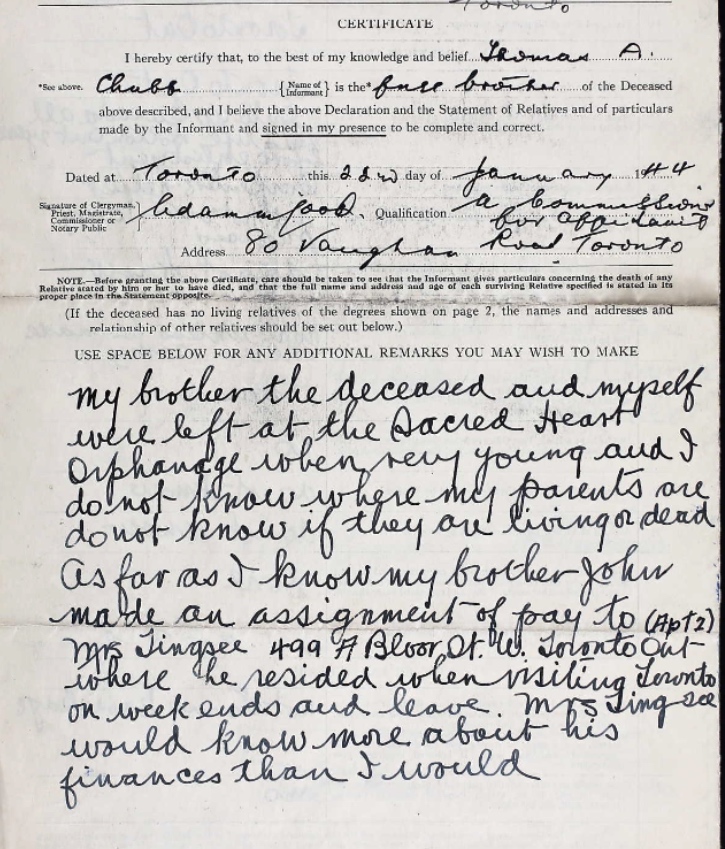 Toronto
CERTIFICATE
I hereby certify that, to the best of my knowledge and belief Thomas A.
*See above. Chubb {Name of Informant} is the* full brother of the Deceased
above described, and I believe the above Declaration and the Statement of Relatives and of particulars
made by the Informant and signed in my presence to be complete and correct.
Dated at Toronto this 22nd day of January 1944
Signature of Clergyman, Priest, Magistrate, Commissioner or Notary Public } Qualification a Commissioner
for Affidavits
Address 80 Vaughan Road Toronto
NOTE.—Before granting the above Certificate, care should be taken to see that the Informant gives particulars concerning the death of any
Relative stated by him or her to have died, and that the full name and address and age of each surviving Relative specified is stated in its
proper place in the Statement opposite.
(If the deceased has no living relatives of the degrees shown on page 2, the names and addresses and
relationship of other relatives should be set out below.)
USE SPACE BELOW FOR ANY ADDITIONAL REMARKS YOU MAY WISH TO MAKE
my brother the deceased and myself
were left at the Sacred Heart
Orphanage when very young and I
do not know where my parents are
do not know if they are living or dead
As far as I know my brother John
made an assignment of pay to (Apt 2)
Mrs Tingsee 499 A Bloor St. W. Toronto Ont
where he resided when visiting Toronto
on week ends and leave. Mrs Tingsee
would know more about his
finances than I would